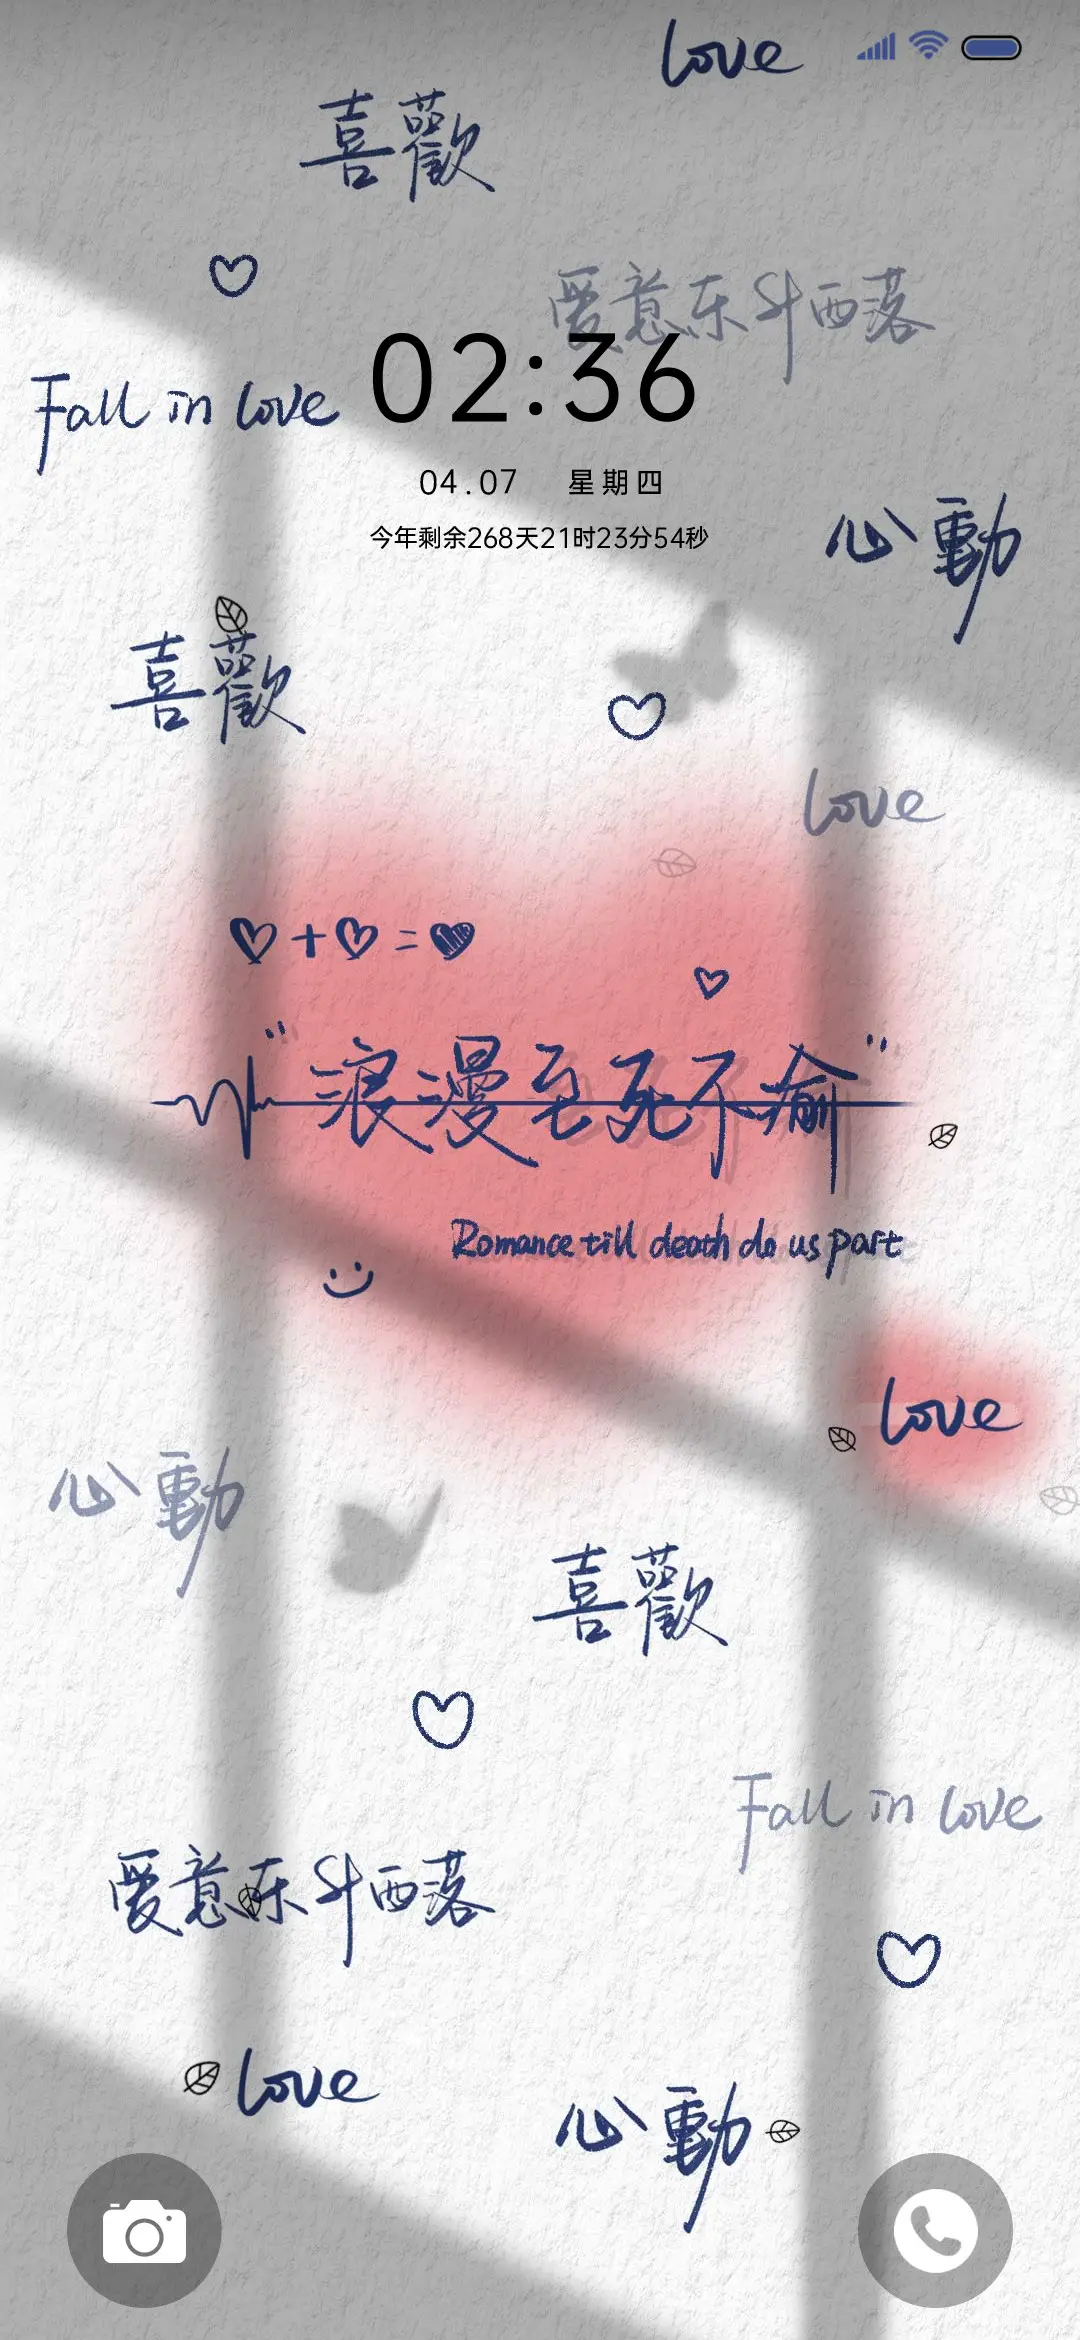 love
喜歡
爱意东升西落
02:36
Fall in love
04.07 星期四
今年剩余268天21时23分54秒
心動
喜歡
love
♡+♡=♥
“浪漫至死不渝”
Romance till death do us part
love
心動
喜歡
Fall in love
爱意东升西落
love
心動